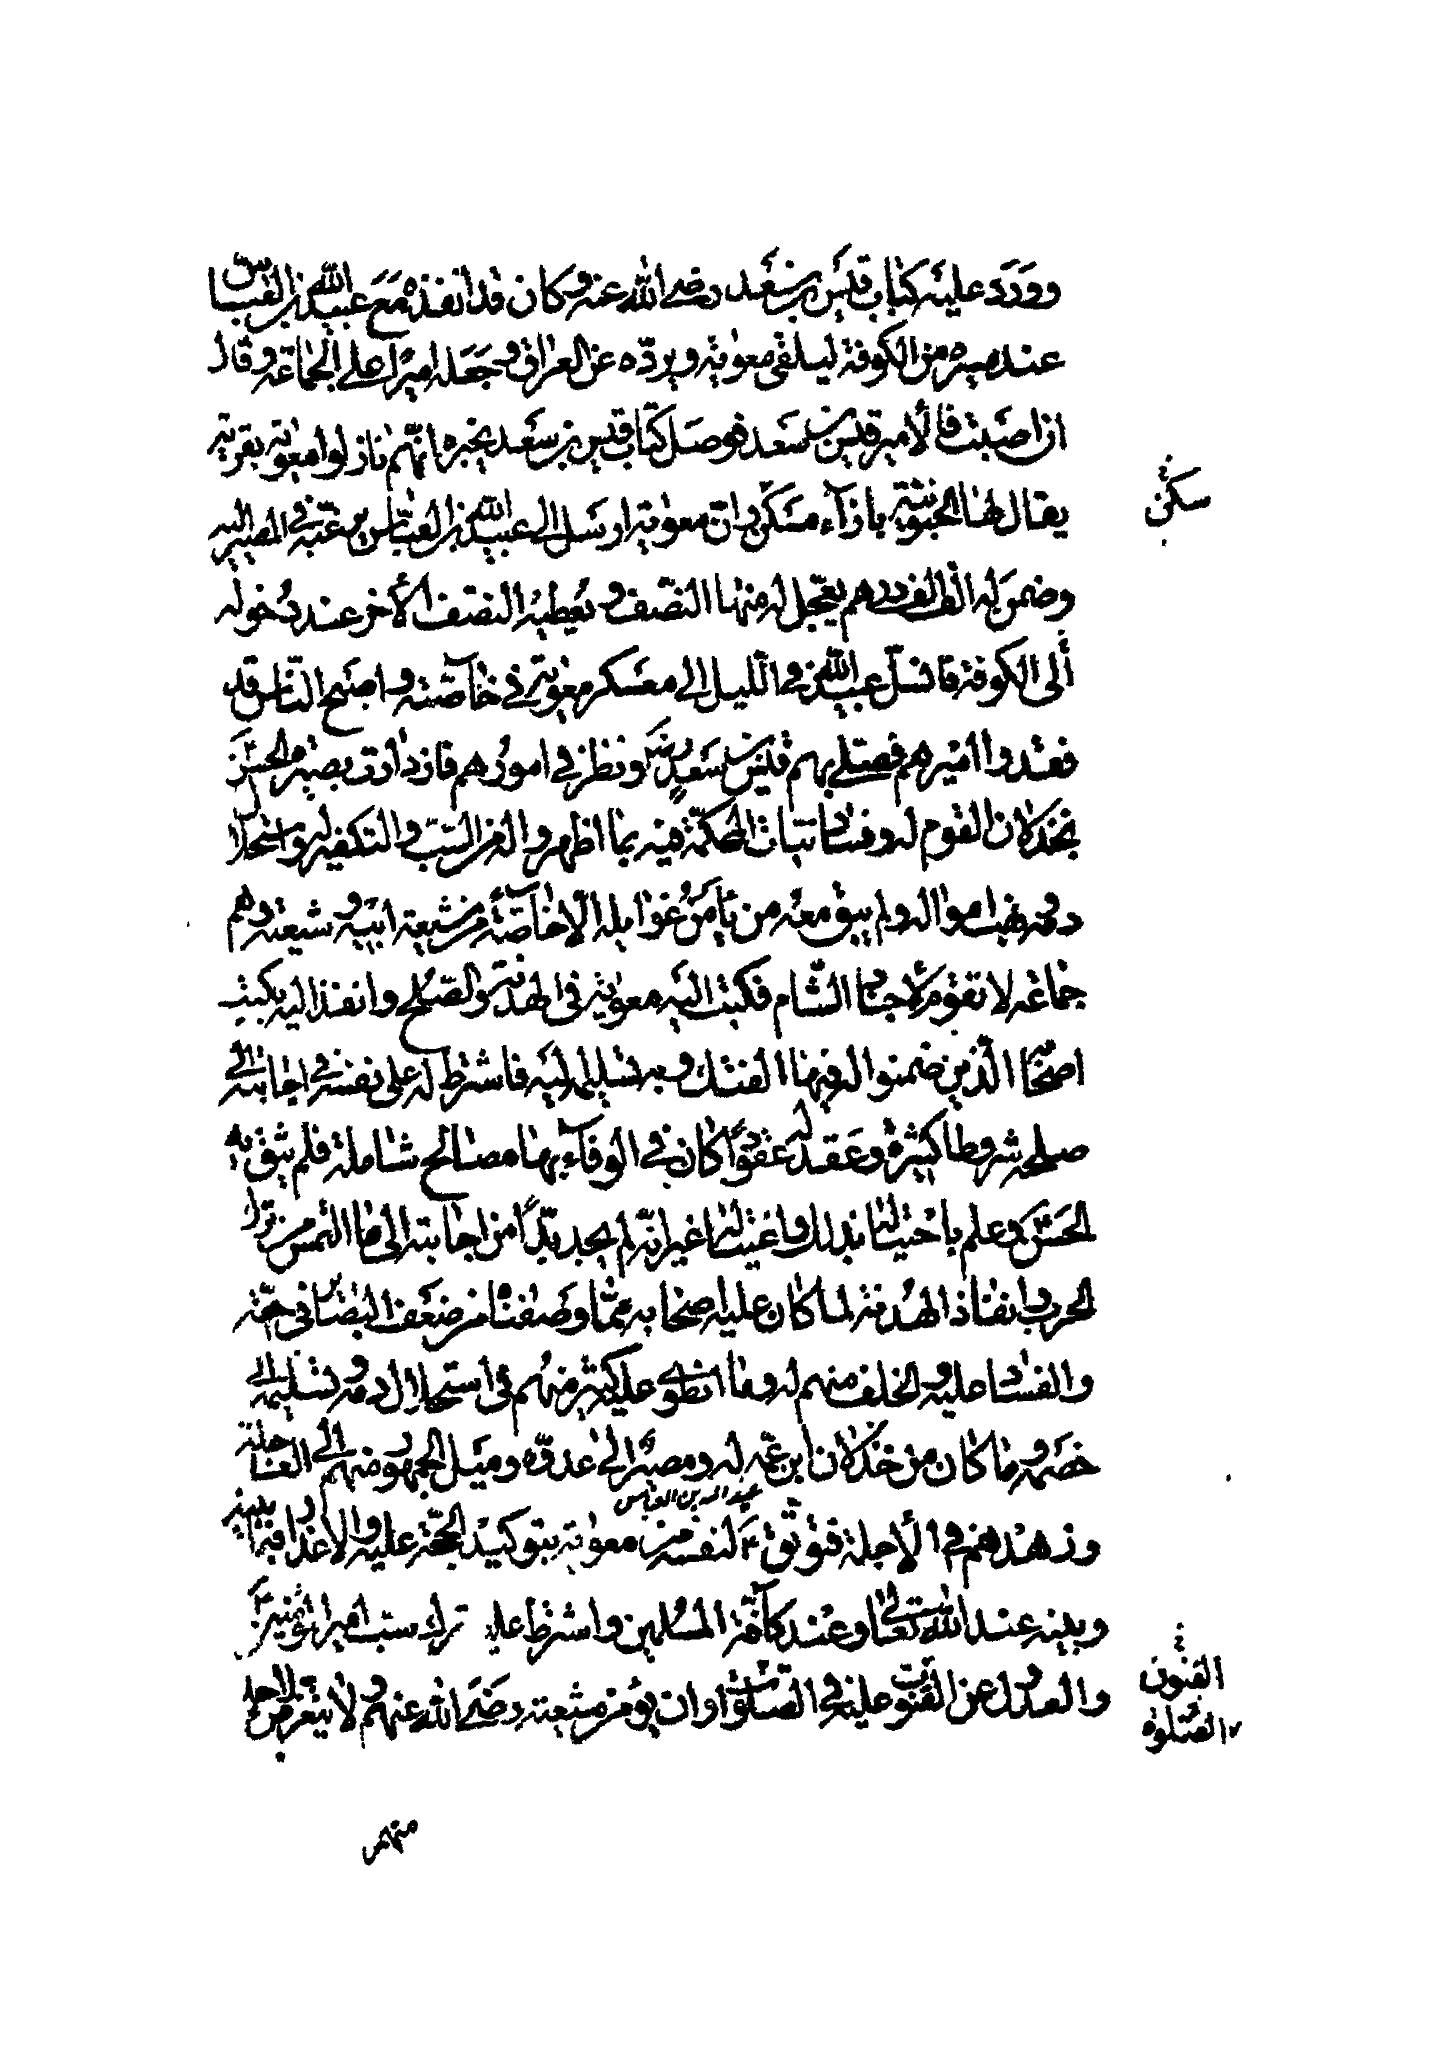 وورد عليه كتاب قيس بن سعد رضي الله عنه وكان قد انفذه مع عبيد الله بن العباس
عند مسيره من الكوفة ليلقى معوية ويرده عن العراق وجعله اميرا على الجماعة وقال
ان اصبت فالأمير قيس بن سعد فوصل كتاب قيس بن سعد يخبره انهم نازلوا معوية بقرية
يقال لها الحبونية بازآء مسكن وان معوية ارسل الى عبيد الله بن العباس يرغبه في المصير اليه
وضمن له الف الف درهم يعجل له منها النصف ويعطيه النصف الأخر عند دخوله
ألى الكوفة فانسل عبيد الله في الليل الى معسكر معوية في خاصته واصبح الناس قد
فقدوا اميرهم فصلى بهم قيس بن سعد رض ونظر في امورهم فازدادت بصيرة الحسن
بخذلان القوم له وفساد نيات المحكمة فيه بما اظهروا له من السب والتكفير له واستحلال
دمه ونهب امواله ولم يبق معه من يأمن غوايله الا خاصة من شيعة ابيه وشيعته وهم
جماعة لا تقوم لأجناد الشام فكتب اليه معوية في الهدنة والصلح وانفذ اليه بكتب
اصحابه الذين ضمنوا له فيها الفتك به وتسليمه اليه فاشترط له على نفسه في اجابته الى
صلحه شروطا كثيرة وعقد له عقودا كان في الوفآء بها مصالح شاملة فلم يثق به
الحسن وعلم باحتياله بذلك واغتياله غير انه لم يجد بدا من اجابته الى ما التمس من ترك
الحرب وانفاذ الهدنة لما كان عليه اصحابه مما وصفناه من ضعف البصاير في حقه
والفساد عليه والخلف منهم له وما انطوى عليه كثير منهم في استحلال دمه وتسليمه الى
خصمه وما كان من خذلان ابن عمه له ومصيره الى عدوه وميل الجمهور منهم الى العاجلة
عبيد الله بن العباس
وزهدهم في الأجلة فتوثق لنفسه من معوية بتوكيد الحجة عليه والاعذار فيما بينه
وبينه عند الله تعالى وعند كآفة المسلمين واشترط عليه ترك سب امير المؤمنين
والعدول عن القنوت عليه في الصلوات وان يؤمن شيعته رضي الله عنهم ولا يتعرض لاحد
سكن
القنوت
الصلوة
منهم